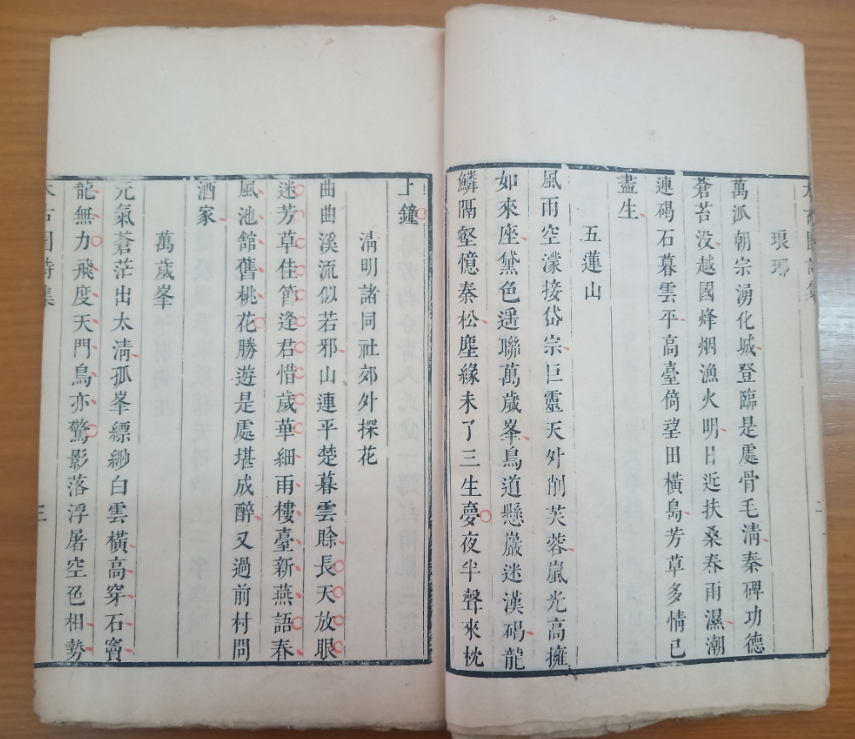 琅琊
萬派朝宗湧化城登臨是處骨毛清秦碑功德
蒼苔没越國烽烟漁火明日近扶桑春雨濕潮
連碣石暮雲平高臺倚望田橫島芳草多情已
盡生
五蓮山
風雨空濛接岱宗巨靈天外削芙蓉嵐光高擁
如來座黛色遥聯萬歲峯鳥道懸巖迷漢碣龍
鱗隔壑憶秦松塵緣未了三生夢夜半聲來枕
上鐘
清明諸同社郊外探花
曲曲溪流似若邪山連平楚暮雲賒長天放眼
迷芳草佳節逢君惜歲華細雨樓臺新燕語春
風池館舊桃花勝遊是處堪成醉又過前村問
酒家
萬歲峯
元氣蒼茫出太清孤峯縹緲白雲橫高穿石竇
龍無力飛度天門鳥亦驚影落浮屠空色相勢
三